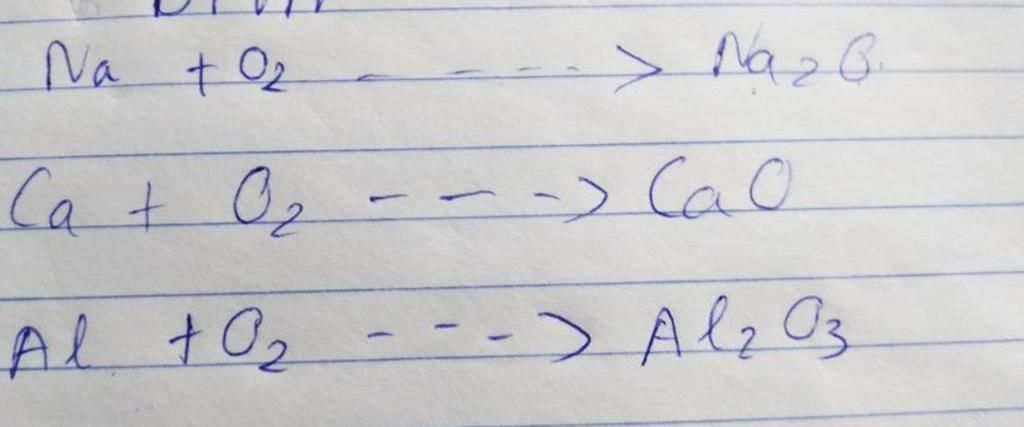 Na + O₂ - - - - -> Na₂O
Ca + O₂ - - - -> CaO
Al + O₂ - - - -> Al₂O₃